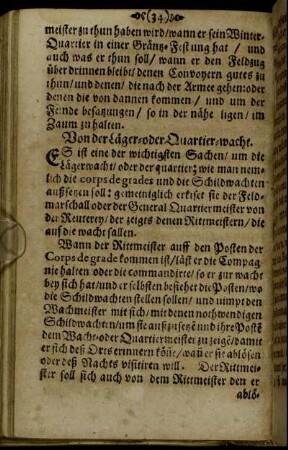 (34)
meister zu thun haben wird/wann er sein Winter-
Quartier in einer Gräntz-Festung hat / und
auch was er thun soll/wann er den Feldzug
über drinnen bleibt/ denen Convoyern gutes zu
thun/ und denen/ die nach der Armee gehen: oder
denen die von dannen kommen / und um der
Feinde besatzungen/ so in der nähe ligen/ im
Zaum zu halten.
Von der Läger-oder-Quartier-wacht.
ES ist eine der wichtigsten Sachen/ um die
Lägerwacht/ oder der quartier; wie man nem-
lich die corps de grades und die Schildwachten
außsetzen soll: gemeiniglich erkiset sie der Feld-
marschall oder der General Quartiermeister von
der Reuterey/ der zeigts denen Rittmeistern/ die
auf die wacht sallen.
Wann der Rittmeister auff den Posten der
Corps de grade kommen ist/läst er die Compag-
nie halten oder die commandirte/ so er zur wacht
bey sich hat/ und er selbsten besiehet die Posten/ wo
die Schildwachten stellen sollen/ und nimpt den
Wachmeister mit sich/ mit denen nothwendigen
Schildwachten/um sie auß zusetzē und ihre Postē
dem Wacht-oder Quartiermeister zu zeigē/damit
er sich deß Orts erinnern köñe/ wañ er sie ablösen
oder deß Nachts visitiren will. Der Rittmei-
ster soll sich auch von dem Rittmeister den er
ablö-